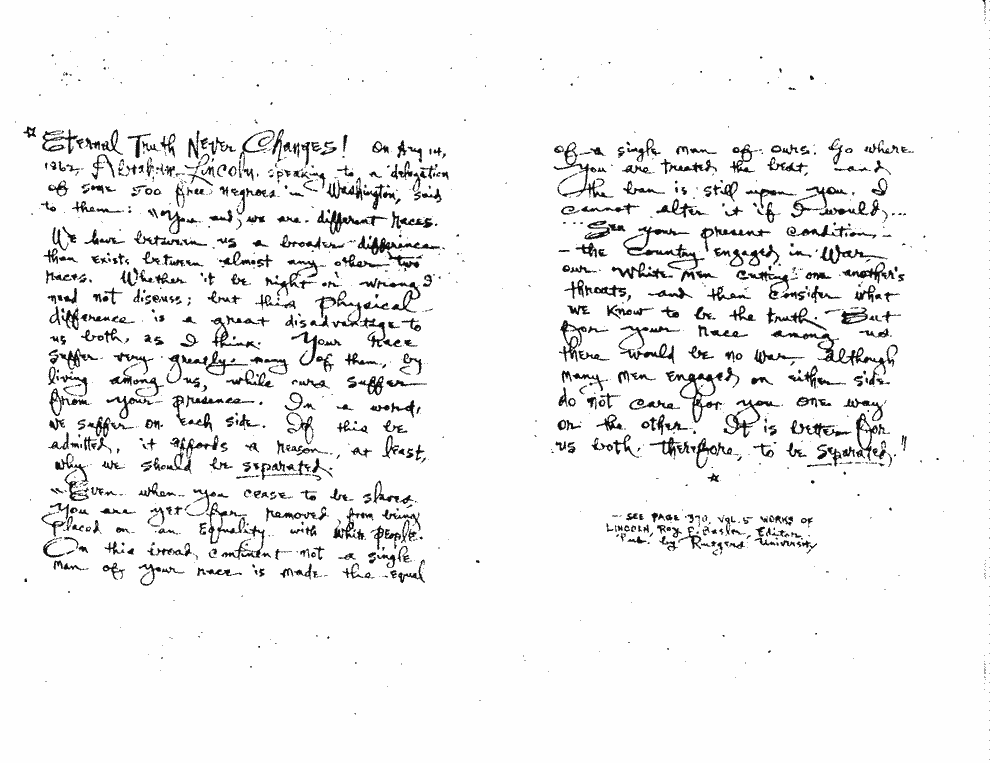 ☆ Eternal Truth Never Changes! On Aug 14,
1862, Abraham Lincoln, speaking to a delegation
of some 500 free negroes in Washington, said
to them: "You and we are different races.
We have between us a broader difference
than exists between almost any other two
races. Whether it be right or wrong I
need not discuss; but this physical
difference is a great disadvantage to
us both, as I think. Your race
suffer very greatly, many of them, by
living among us, while ours suffer
from your presence. In a word,
we suffer on each side. If this be
admitted, it affords a reason, at least,
why we should be separated.
"Even when you cease to be slaves,
you are yet far removed from being
placed on an Equality with white people.
On this broad continent not a single
man of your race is made the equal
of a single man of ours. Go where
you are treated the best, and
the ban is still upon you. I
cannot alter it if I would,...
See your present condition, —
— the Country engaged in War
our White men cutting one another's
throats, and then consider what
we know to be the truth. But
for your race among us
there would be no war, although
many men engaged on either side
do not care for you one way
or the other. It is better for
us both, therefore, to be separated."
☆
— SEE PAGE 370, VOL. 5 WORKS OF
LINCOLN, Roy P. Basler, Editor.
Pub. by Rutgers University